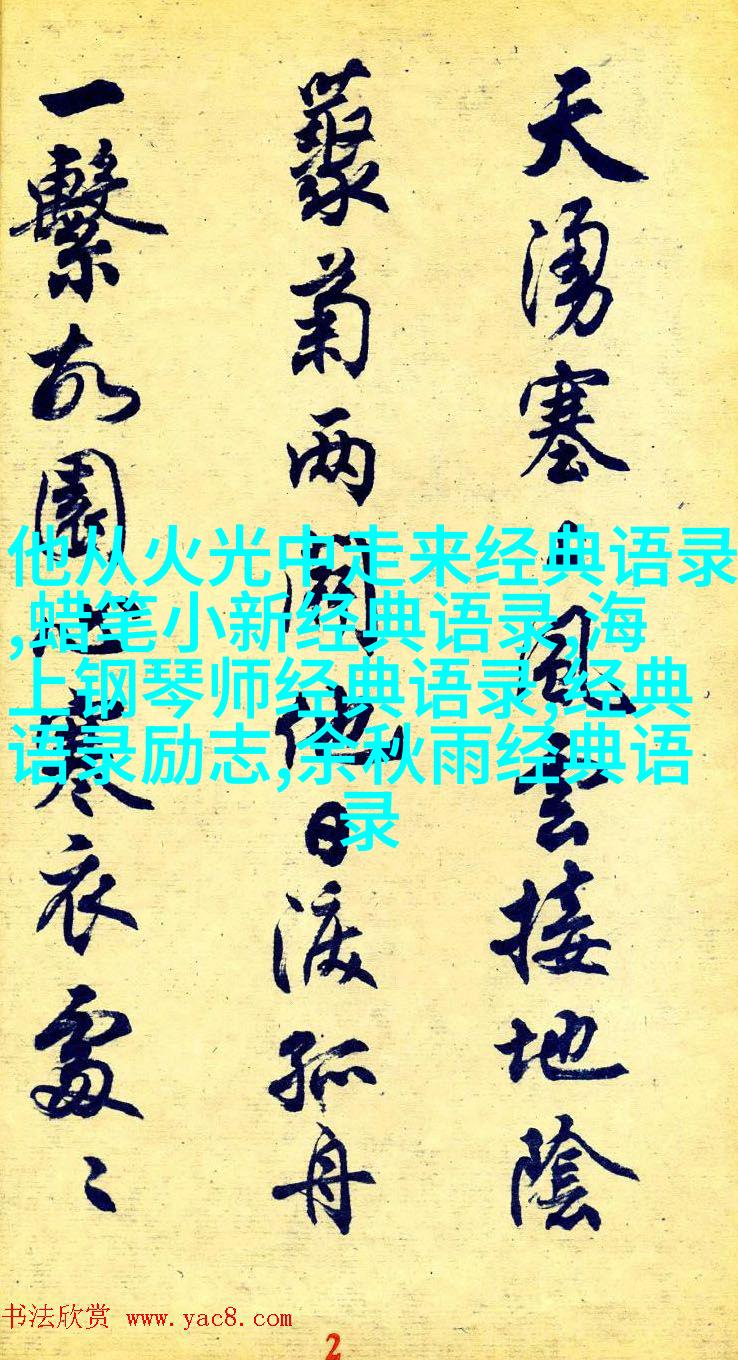 天湧塞上風雲接地陰
叢菊两開他日淚孤舟
一繫故園心寒衣處〻
他从火光中走来经典语录
,蜡笔小新经典语录,海
上钢琴师经典语录,经典
语录励志,余秋雨经典语
录
书法欣赏 www.yac8.com
2